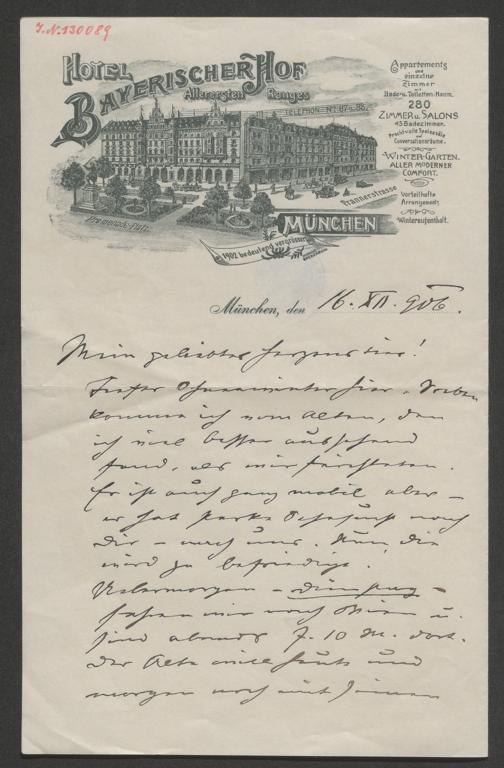 J.N. 130089
HOTEL
BAYERISCHER HOF
Allerersten Ranges
TELEPHON Nº 87 u. 88.
Appartements
und
einzelne
Zimmer
mit
Bade- u. Toiletten-Raum.
280
ZIMMER u. SALONS
43 Badezimmer.
Prachtvolle Speisesäle
und
Conversationsräume.
WINTER-GARTEN.
ALLER MODERNER
COMFORT.
Vorteilhafte
Arrangements
Winteraufenthalt.
Prannerstrasse
Promenade-Platz
MÜNCHEN
1902 bedeutend vergrössert
München, den 16. XII. 906.
Mein geliebter Herzens
hier. Soeben
komme ich vom Alten, den
ich viel besser aussehend
fand, als wir fürchteten.
Er ist auch ganz mobil aber –
er hat starke Sehnsucht nach
Dir – nach uns. Nun die
wird ja befriedigt.
Uebermorgen – Dienstag –
fahren wir nach Wien u.
sind abends 7.10 M. dort.
Der Alte will heute und
morgen noch mit